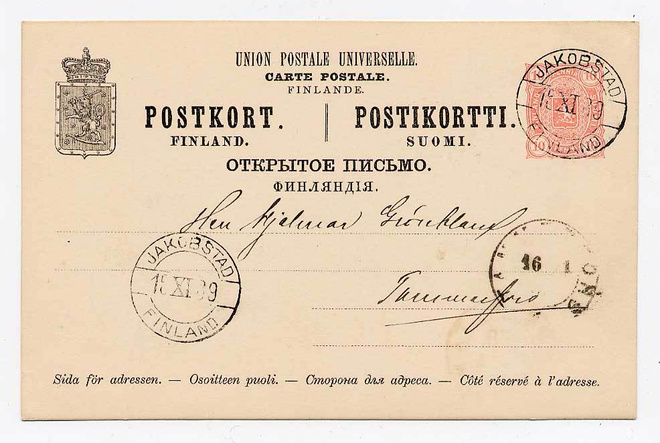 UNION POSTALE UNIVERSELLE.
CARTE POSTALE.
FINLANDE.
POSTKORT. POSTIKORTTI.
FINLAND. SUOMI.
ОТКРЫТОЕ ПИСЬМО.
ФИНЛЯНДІЯ.
JAKOBSTAD
15 XI 89
FINLAND
10
Herr Hjalmar Grönlund
JAKOBSTAD
15 XI 89
FINLAND
16
Tammerfors
Sida för adressen. — Osoitteen puoli. — Сторона для адреса. — Côté réservé à l'adresse.